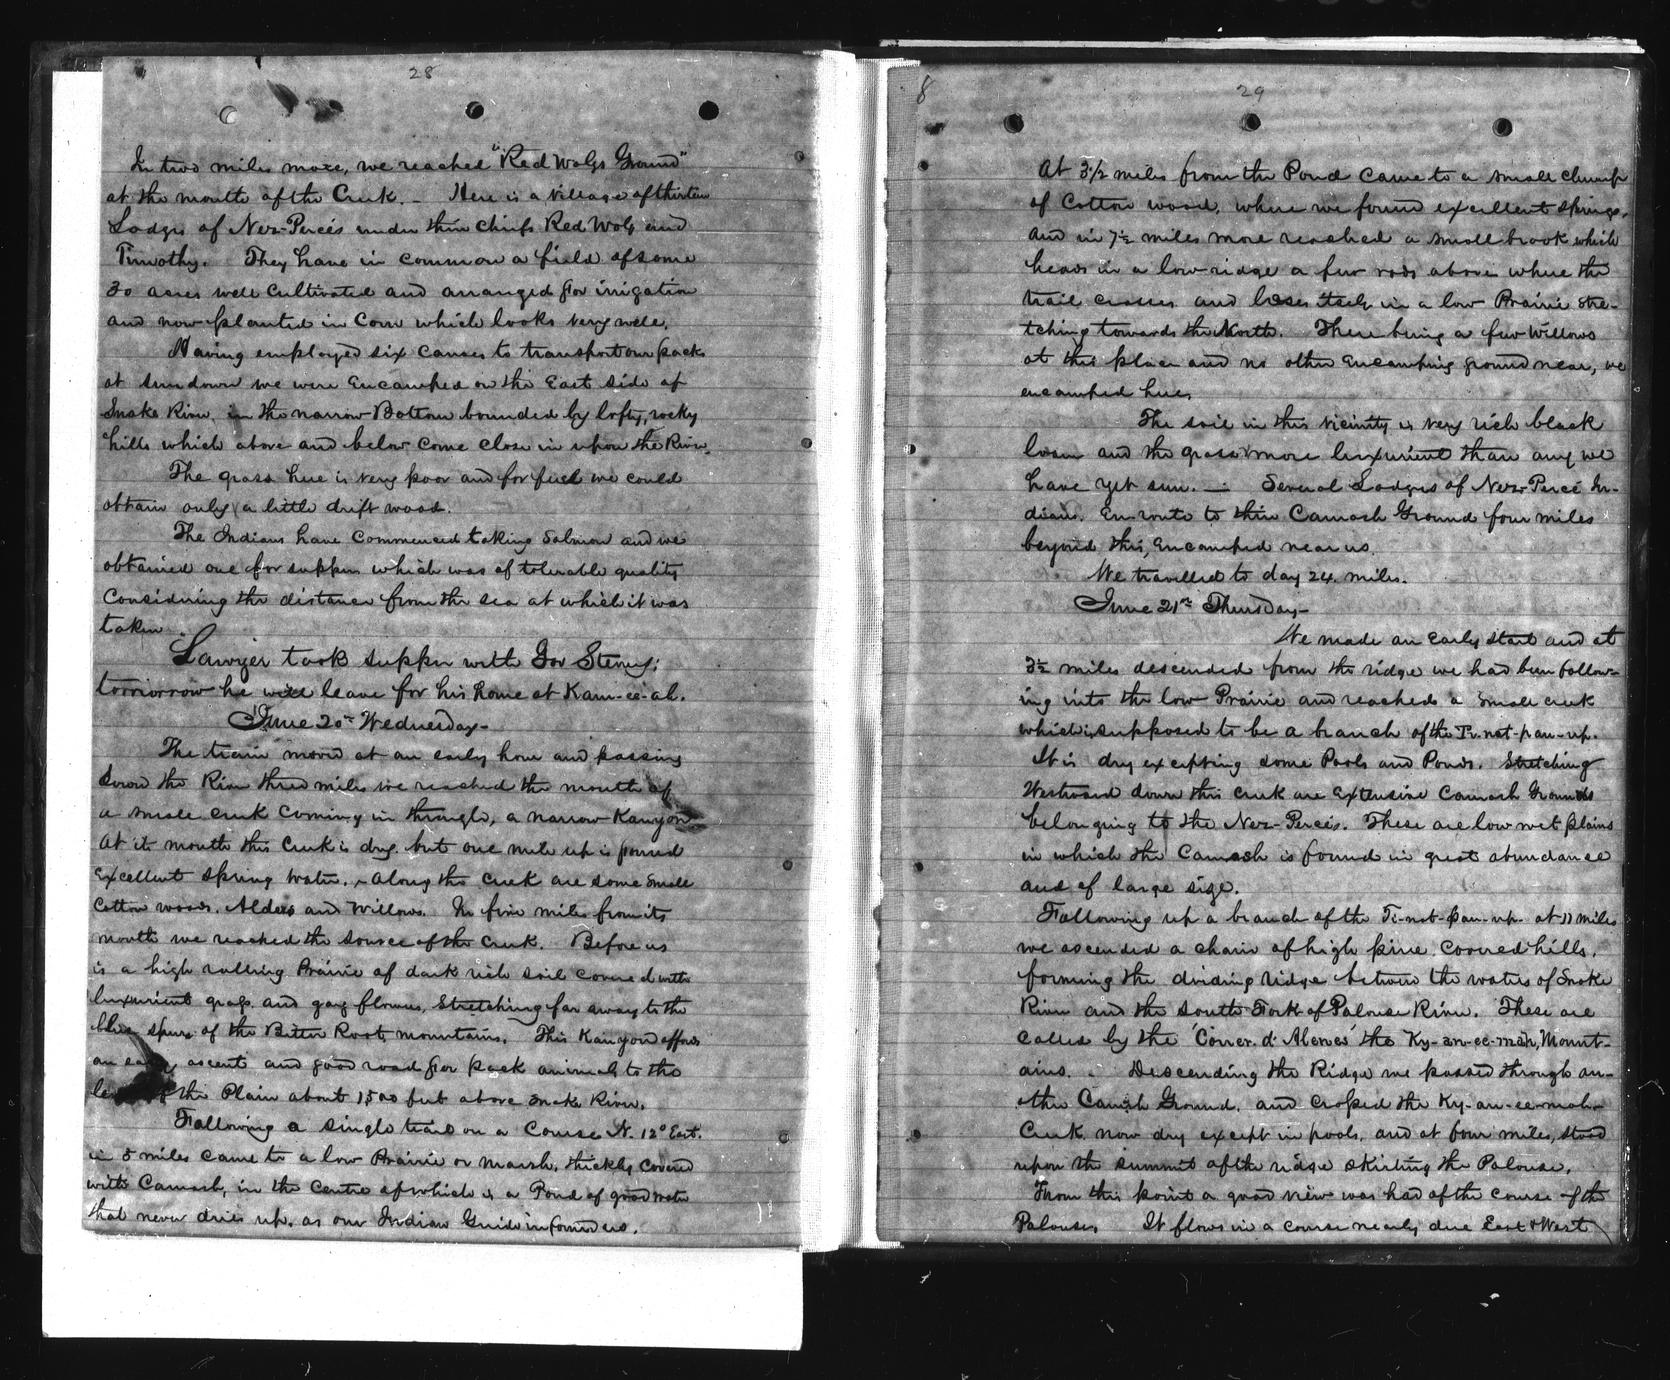 28
In two miles more, we reached "Red Wolfs Ground"
at the mouth of the Creek. _ Here is a village of thirteen
Lodges of Nez-Percés under their chiefs Red Wolf and
Timothy. They have in common a field of some
30 acres well cultivated and arranged for irrigation
and now planted in Corn which looks very well.
Having employed six canoes to transport our packs
at sundown we were Encamped on the East side of
Snake River, in the narrow Bottom bounded by lofty, rocky
hills which above and below come close in upon the River.
The grass here is very poor and for fuel we could
obtain only a little drift wood.
The Indians have commenced taking Salmon and we
obtained one for supper which was of tolerable quality
Considering the distance from the sea at which it was
taken.
Lawyer took supper with Gov Stevens;
tomorrow he will leave for his home at Kam-ee-ah.
June 20th Wednesday-
The train moved at an early hour and passing
down the River three miles we reached the mouth of
a small creek coming in through, a narrow Kanyon
At its mouth this Creek is dry. but one mile up is found
Excellent spring water. Along the creek are some small
Cotton woods. Alders and Willows. In five miles from its
mouth we reached the source of the creek. Before us
is a high rolling Prairie of dark rich soil covered with
luxurient grass. and gay flowers, stretching far away to the
blue spurs of the Bitter Root mountains. This Kanyon affords
an easy ascent and good road for pack animals to the
the Plain about 1500 feet above Snake River.
Following a single trail on a Course N. 12° East.
in 5 miles came to a low Prairie or marsh, thickly covered
with Camash, in the centre of which is a Pond of good water
that never dries up. as our Indian Guide informed us.
8
29
At 3½ miles from the Pond came to a small clump
of cotton wood, where we found excellent springs,
and in 7½ miles more reached a small brook which
heads in a low ridge a few rods above where the
trail crosses and loses itself in a low Prairie stre-
tching towards the North. There being a few Willows
at this place and no other Encamping ground near, we
encamped here.
The soil in this vicinity is very rich black
loam and the grass more luxurient than any we
have yet seen. _ Several Lodges of Nez-Percé In-
dians. En route to their Camash Ground four miles
beyond this, Encamped near us.
We travelled to day 24. miles.
June 21st Thursday-
We made an early start and at
3½ miles descended from the ridge we had been follow-
ing into the low Prairie and reached a small creek
which is supposed to be a branch of the Ti-nat-pan-up.
It is dry excepting some Pools and Ponds. Stretching
Westward down this creek are Extensive Camash Grounds
belonging to the Nez-Percés. These are low wet plains
in which the Camash is found in great abundance
and of large size.
Following up a branch of the Ti-nat-pan-up. at 11 miles
we ascended a chain of high pine covered hills.
forming the dividing ridge between the waters of Snake
River and the South Fork of Palouse River. These are
called by the 'Coeur. d' Alenes' the Ky-an-ee-mah, Mount-
ains. _ Descending the Ridge we passed through an-
other Camash Ground. and crossed the Ky-an-ee-mah-
Creek. now dry except in pools, and at four miles, stood
upon the summit of the ridge skirting the Palouse.
From this point a good view was had of the course of the
Palouse. It flows in a course nearly due East & West